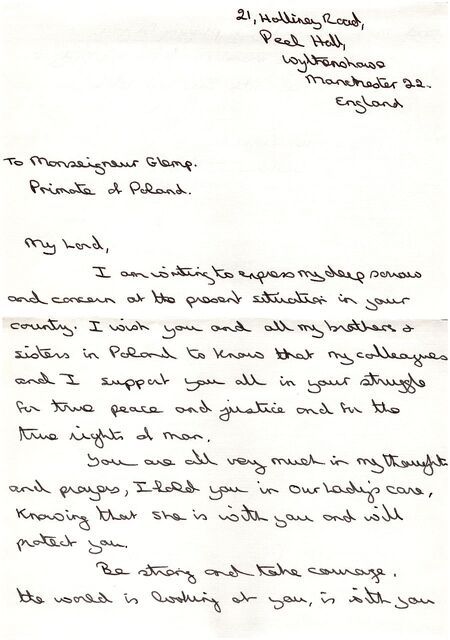 21, Holliney Road,
Peel Hall,
Wythenshawe
Manchester 22.
England
To Monseigneur Glemp.
Primate of Poland.
My Lord,
I am writing to express my deep sorrow
and concern at the present situation in your
country. I wish you and all my brothers &
sisters in Poland to know that my colleagues
and I support you all in your struggle
for true peace and justice and for the
true rights of man.
You are all very much in my thoughts
and prayers, I hold you in Our Lady's care,
knowing that she is with you and will
protect you.
Be strong and take courage.
the world is looking at you, is with you